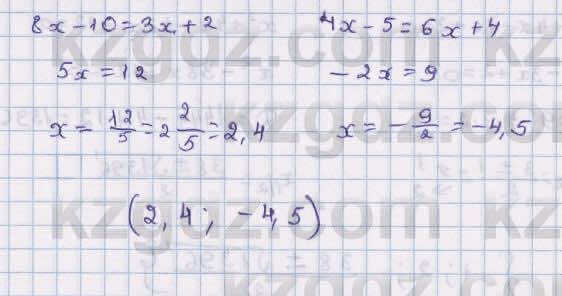 8x-10=3x+2
5x=12
x=12/5=2 2/5=2,4
4x-5=6x+4
-2x=9
x=-9/2=-4,5
(2,4; -4,5)
kzgdz.com kzgdz.com
kzgdz.com kzgdz.com
kzgdz.com kzgdz.com